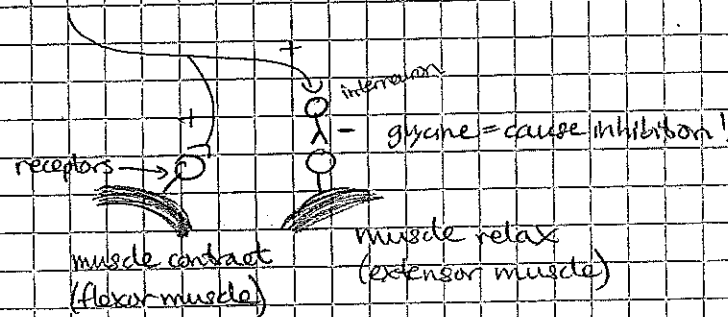 +
interneuron
+
- glycine = cause inhibition!
receptors →
muscle contract
(flexor muscle)
muscle relax
(extensor muscle)